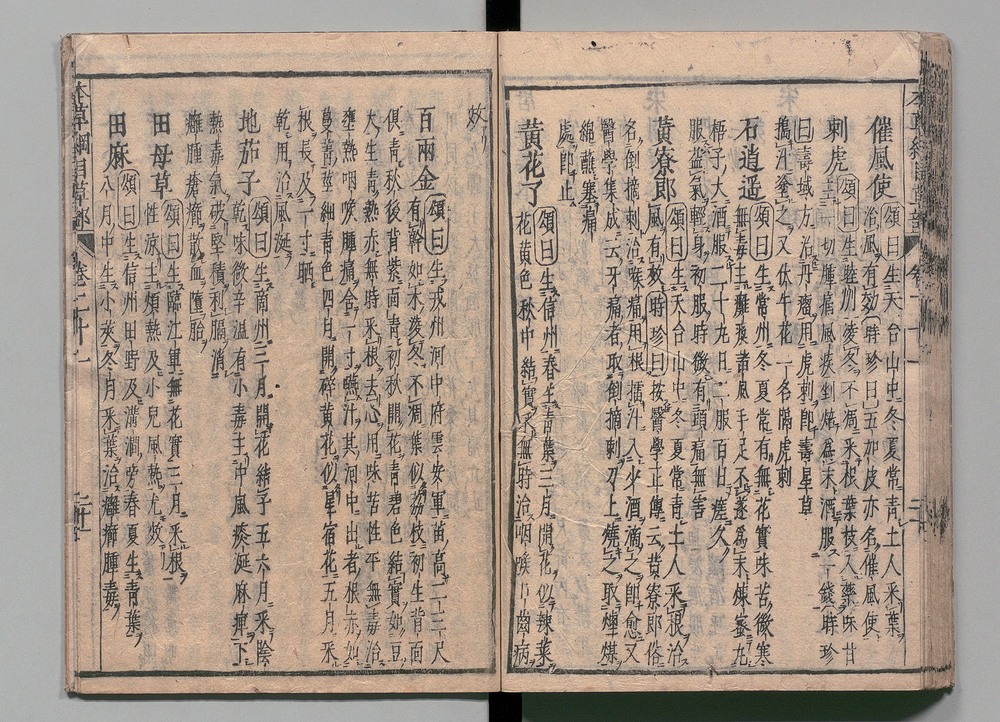 催風使 頌曰生天台山中冬夏常青土人采葉
治風有效時珍曰五加皮亦名催風使
刺虎 頌曰生睦州凌冬不凋采根葉枝入藥味甘
主一切腫痛風疾剉焙爲末酒服一錢時珍
曰壽域方治丹瘤用虎刺即壽星草
擣汁塗之又伏牛花一名隔虎刺
石逍遥 頌曰生常州冬夏常有無花實味苦微寒
無毒主癱瘓諸風手足不遂爲末煉蜜丸
梧子大酒服二十九日二服百日瘥久
服益氣輕身初服時微有頭痛無害
黄寮郎 頌曰生天台山中冬夏常青土人采根治
風有效時珍曰按醫學正傳云黄寮郎俗
名倒摘刺治喉痛用根擂汁入少酒滴之即愈又
醫學集成云牙痛者取倒摘刺刀上燒之取煙煤
綿蘸塞痛
處即止
黄花了 頌曰生信州春生青葉三月開花似辣菜
花黄色秋中結實采無時治咽喉口齒病
效
百兩金 頌曰生戎州河中府雲安軍苗高二三尺
有幹如木凌冬不凋葉似荔枝初生背面
俱青秋後背紫面青初秋開花青碧色結實如豆
大生青熟赤無時采根去心用味苦性平無毒治
壅熱咽喉腫痛含一寸嚥汁其河中出者根赤如
蔓菁莖細青色四月開碎黄花似星宿花五月采
根長及一寸晒
乾用治風涎
地茄子 頌曰生商州三月開花結子五六月采陰
乾味微辛温有小毒主中風痰涎麻痺下
熱毒氣破堅積利膈消
癰腫瘡癤散血墮胎
田母草 頌曰生臨江軍無花實三月采根
性凉主煩熱及小兒風熱尤效
田麻 頌曰生信州田野及溝澗旁春夏生青葉
八月中生小莢冬月采葉治癰癤腫毒
本草綱目草部 卷二十一